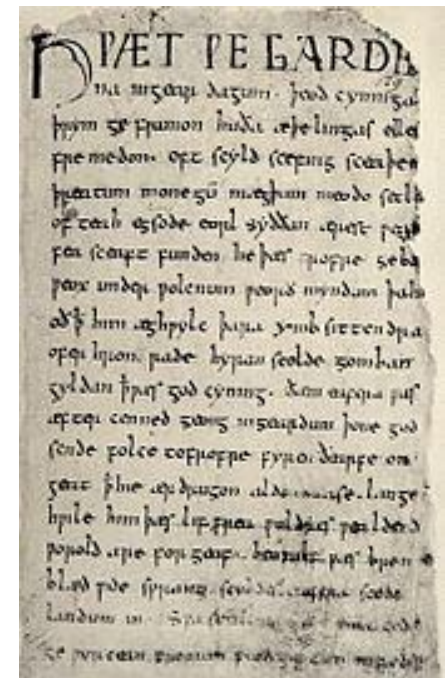 HǷÆT ǷE GARDE
na ingear dagum. þeod cyninga
þrym ge frunon huða æþelingas elle
fremedon. oft scyld scefing sceaþen
þreatum monegū mægþum meodo setl
of teah egsode eorl syððan ærest ƿear
fea sceaft funden he þæs frofre geba
ƿeox under ƿolcnum ƿeorð myndum þah
oð ꝥ him æghƿylc þara ymb sittendra
ofer hron rade hyran scolde gomban
gyldan ꝥ ƿæs god cyning. ðæm eafera ƿæs
æfter cenned geong ingeardum þone god
sende folce tofrofre fyren ðearfe on
geat ꝥ hie ær drugon aldor ase. lange
hƿile him þæs lif frea ƿuldres ƿealdend
ƿorold are for geaf. beoƿulf ƿæs breme
blæd ƿide sprang scyldes eafera scede
landum in
ge ƿyrcean fromum feoh giftum